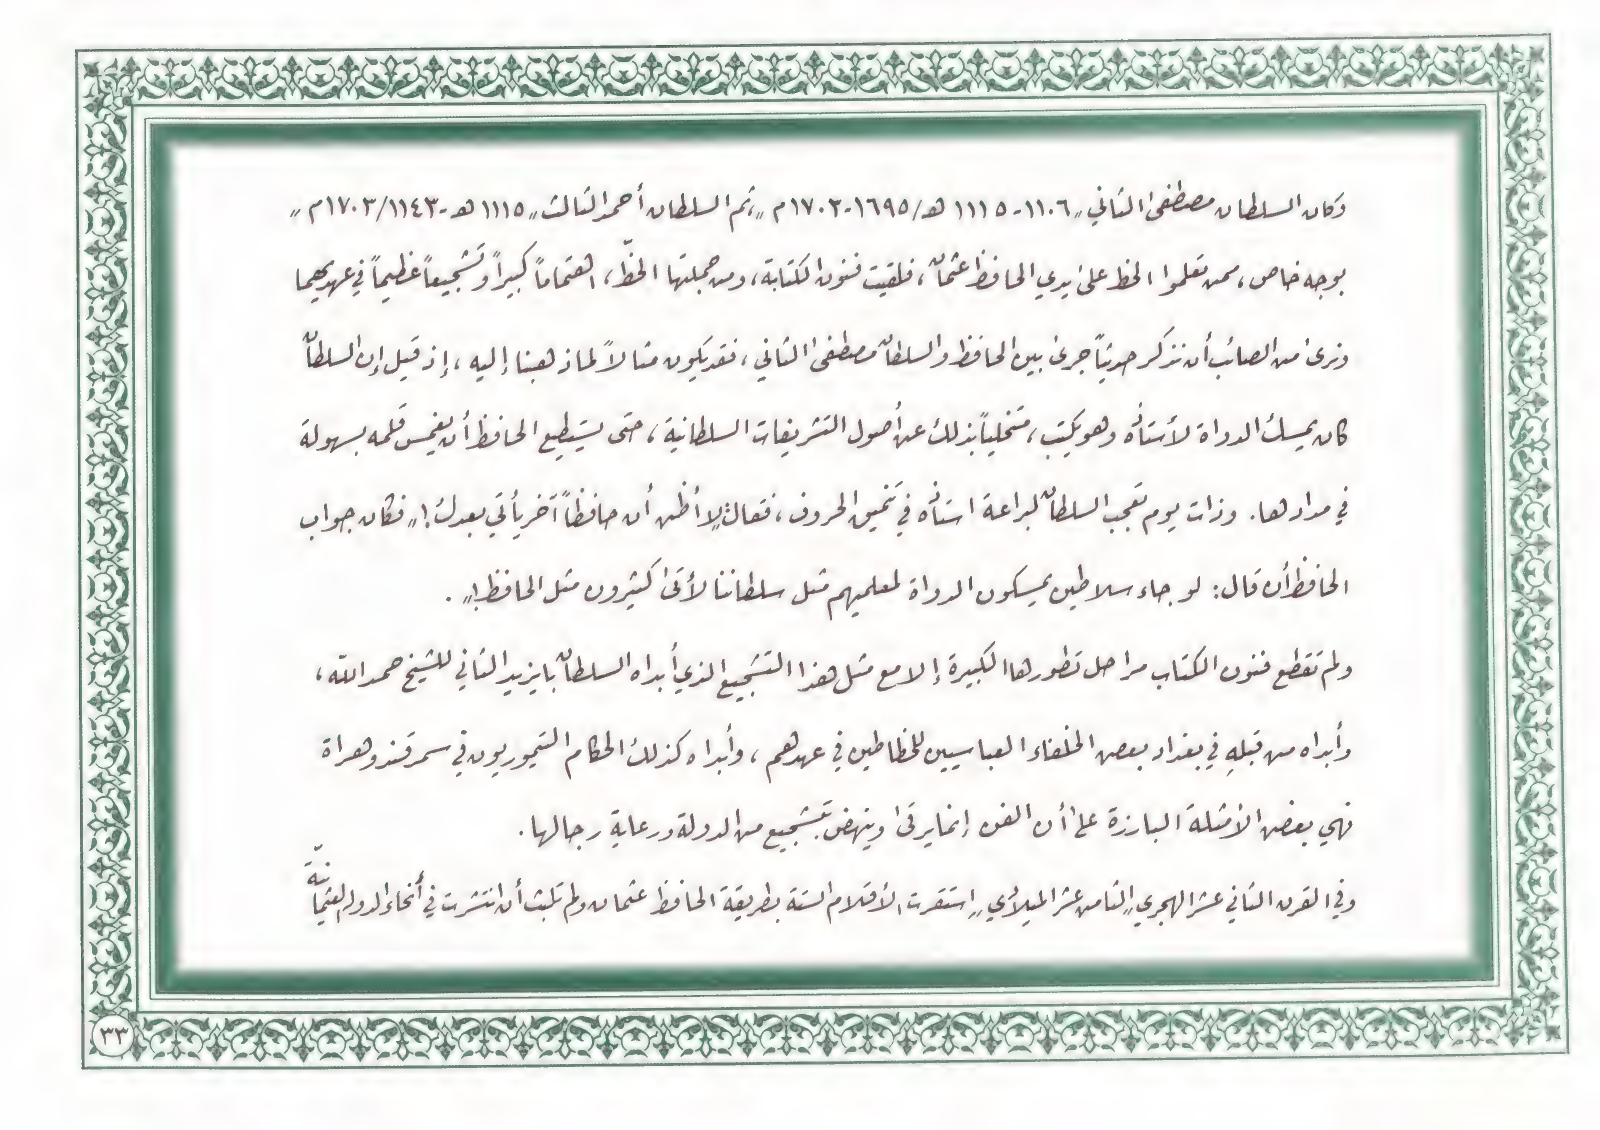 وكان السلطان مصطفى الثاني „١١٠٦-١١١٥ هـ/١٦٩٥-١٧٠٢م„، ثم السلطان أحمد الثالث „١١١٥ هـ-١١٤٣/١٧٠٣م„
بوجه خاص، ممن تعلموا الخط على يدي الحافظ عثمان، فلقيت فنون الكتابة، ومن جملتها الخطّ، اهتماماً كبيراً وتشجيعاً عظيماً في عهديهما
ونرى من الصائب أن نذكر حديثاً جرى بين الحافظ والسلطان مصطفى الثاني، فقد يكون مثالاً لما ذهبنا إليه، إذ قيل إن السلطان
كان يمسك الدواة لأستاذه وهو يكتب، متخلياً بذلك عن أصول التشريفات السلطانية، حتى يستطيع الحافظ أن يغمس قلمه بسهولة
في مدادها. وذات يوم تعجب السلطان لبراعة استاذه في تنميق الحروف، فقال: „لا أظن أن حافظاً آخر يأتي بعدك!„ فكان جواب
الحافظ أن قال: لو جاء سلاطين يمسكون الدواة لمعلميهم مثل سلطاننا لأتى كثيرون مثل الحافظ!„.
ولم تقطع فنون الكتاب مراحل تطورها الكبيرة إلا مع مثل هذا التشجيع الذي أبداه السلطان بايزيد الثاني للشيخ حمد الله،
وأبداه من قبلهِ في بغداد بعض الخلفاء العباسيين للخطاطين في عهدهم، وأبداه كذلك الحكام التيموريون في سمرقند وهراة
فهي بعض الأمثلة البارزة على أن الفن إنما يرقى وينهض بتشجيع من الدولة ورعاية رجالها.
وفي القرن الثاني عشر الهجري „الثامن عشر الميلادي„ استقرت الأقلام الستة بطريقة الحافظ عثمان ولم تلبث أن انتشرت في أنحاء الدولة العثمانيّة
٣٣